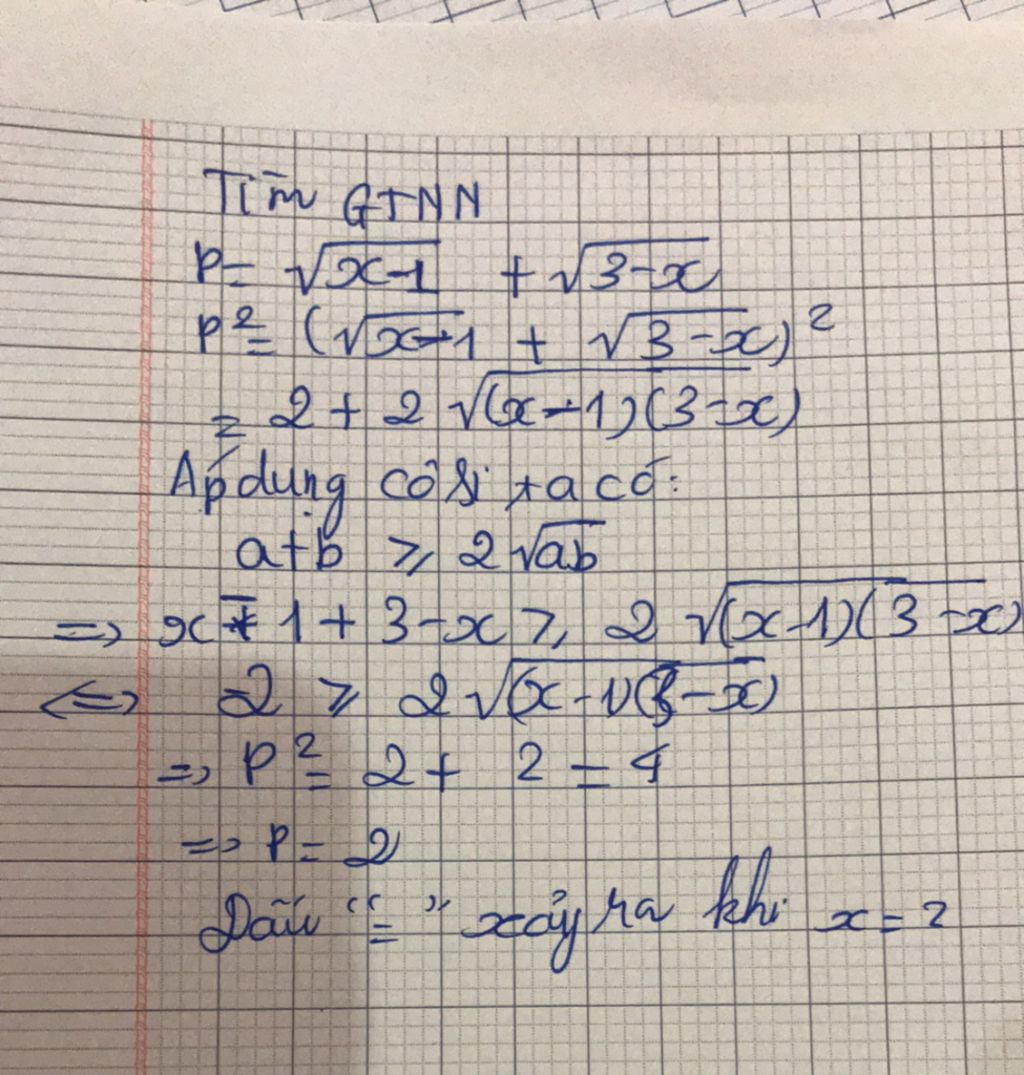 Tìm GTNN
P = √(x-1) + √(3-x)
P² = (√(x-1) + √(3-x))²
= 2 + 2 √((x-1)(3-x))
Áp dụng cô si ta có:
a+b ≥ 2√ab
=> x-1+3-x ≥ 2 √((x-1)(3-x))
<=> 2 ≥ 2√((x-1)(3-x))
=> P² = 2 + 2 = 4
=> P = 2
Dấu "=" xảy ra khi x = 2